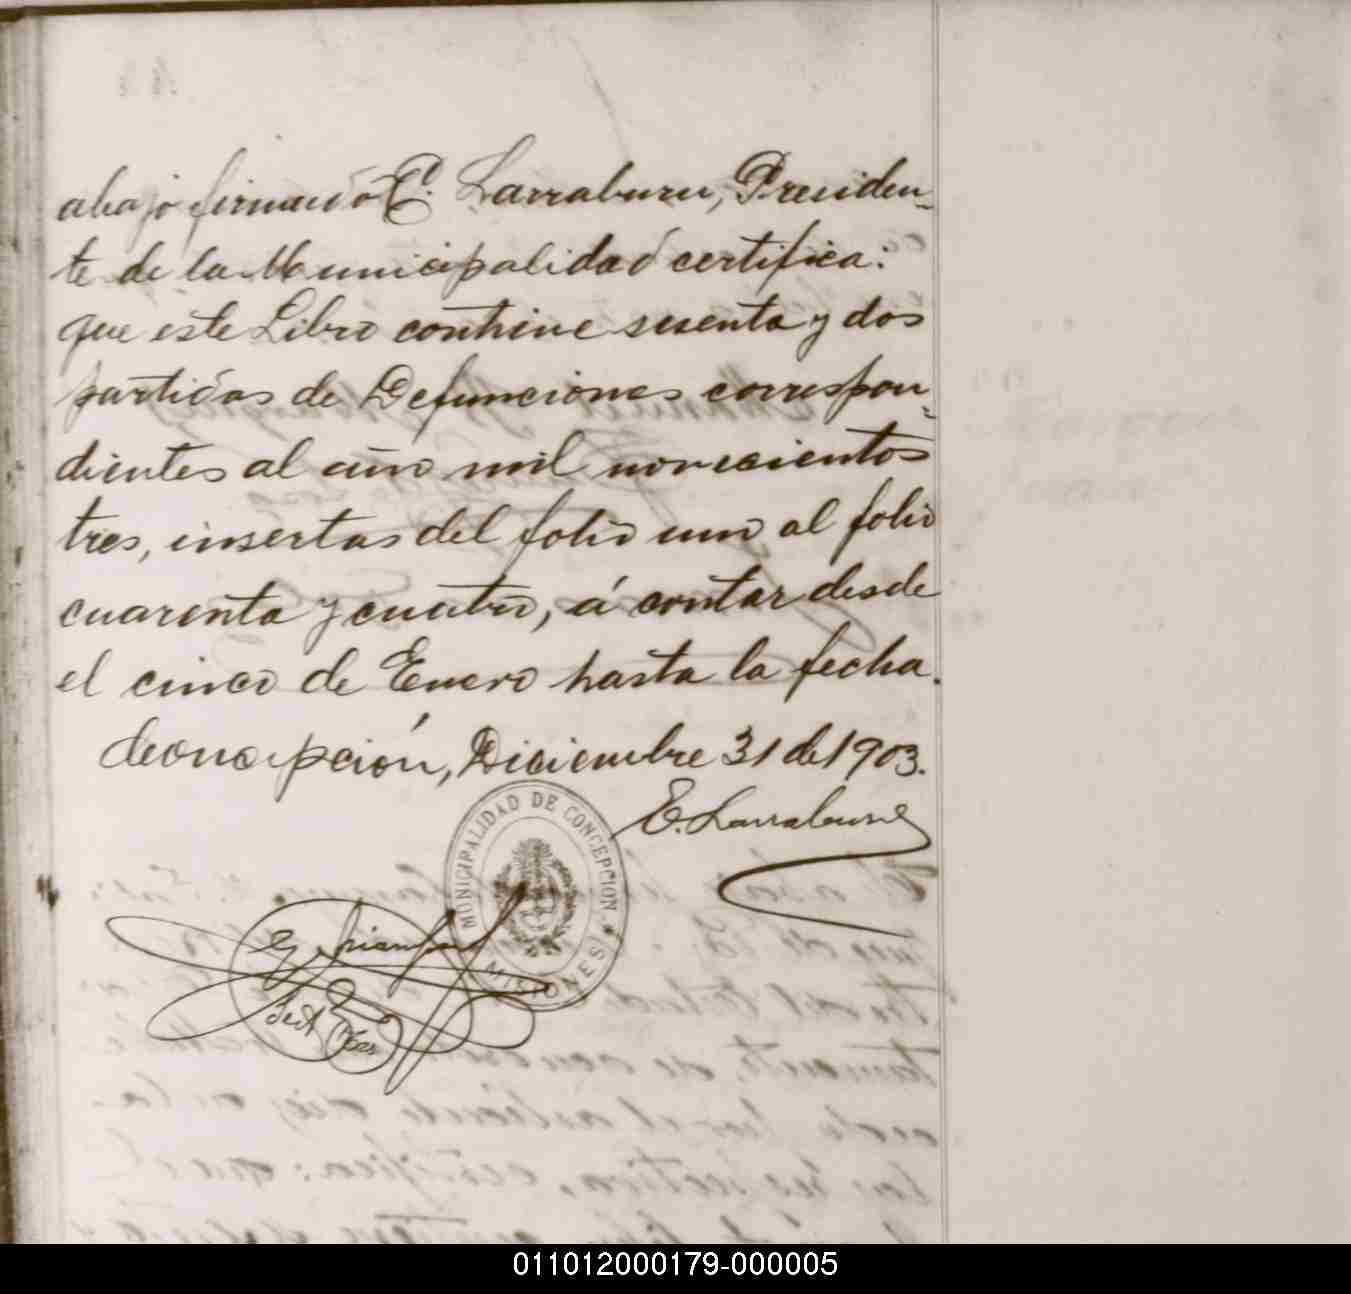 abajo firmado E. Larraburu, Presiden-
te de la Municipalidad certifica:
que este Libro contiene sesenta y dos
partidas de Defunciones correspon-
dientes al año mil novecientos
tres, insertas del folio uno al folio
cuarenta y cuatro, á contar desde
el cinco de Enero hasta la fecha.
Concepción, Diciembre 31 de 1903.
E. Larraburu
MUNICIPALIDAD DE CONCEPCION
MISIONES
011012000179-000005